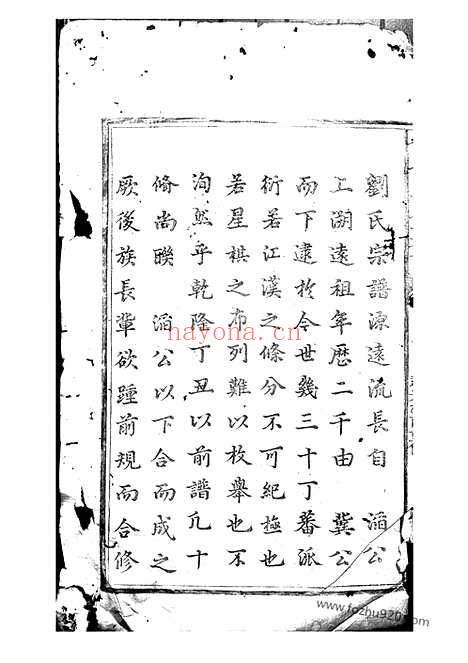 劉氏宗譜源遠流長自 滔公
上溯遠祖年歷二千由 龔公
而下逮於今世幾三十丁蕃派
衍若江漢之條分不可紀極也
若星棋之布列難以枚舉也不
洵然乎乾隆丁丑以前譜凢十
脩尚聯 滔公以下合而成之
厥後族長輩欲踵前規而合修
hayona.cn
www.fozhu920.com